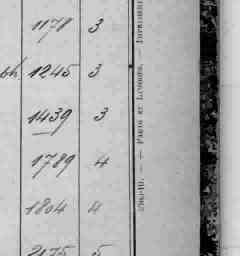 1178 3
bh 1245 3
1439 3
1789 4
1804 4
2175 5
— PARIS ET LONDRES. — IMPRIMERIE